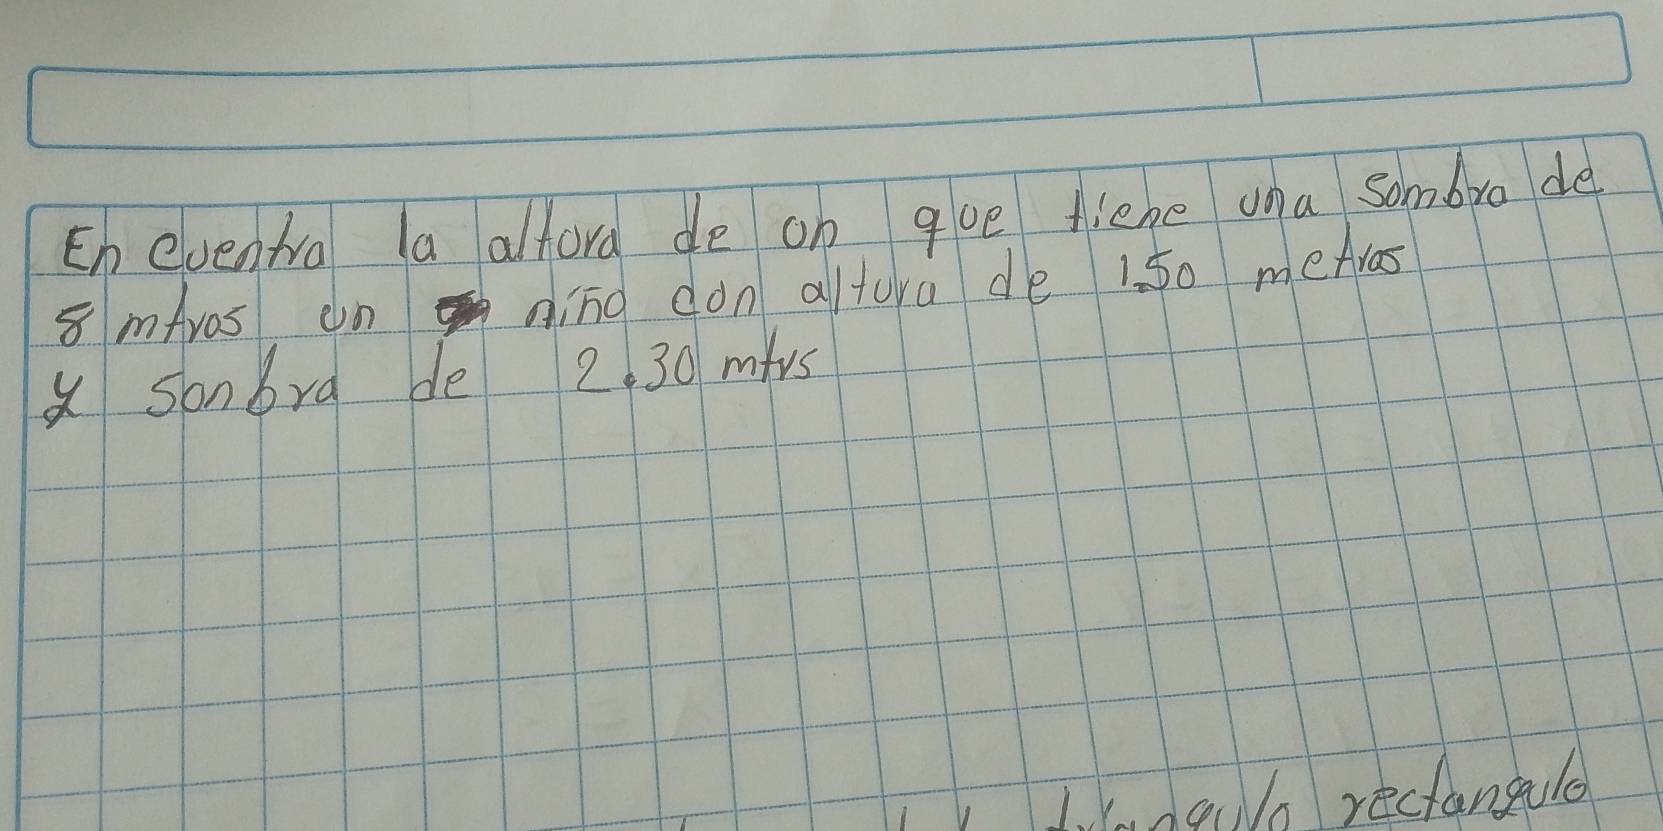 En cuentra la altora de on que tiene una sombra de
8 mtros un nino con altura de 1.50 metros
y sonbra de 2.30 mtrs
triangulo rectangulo